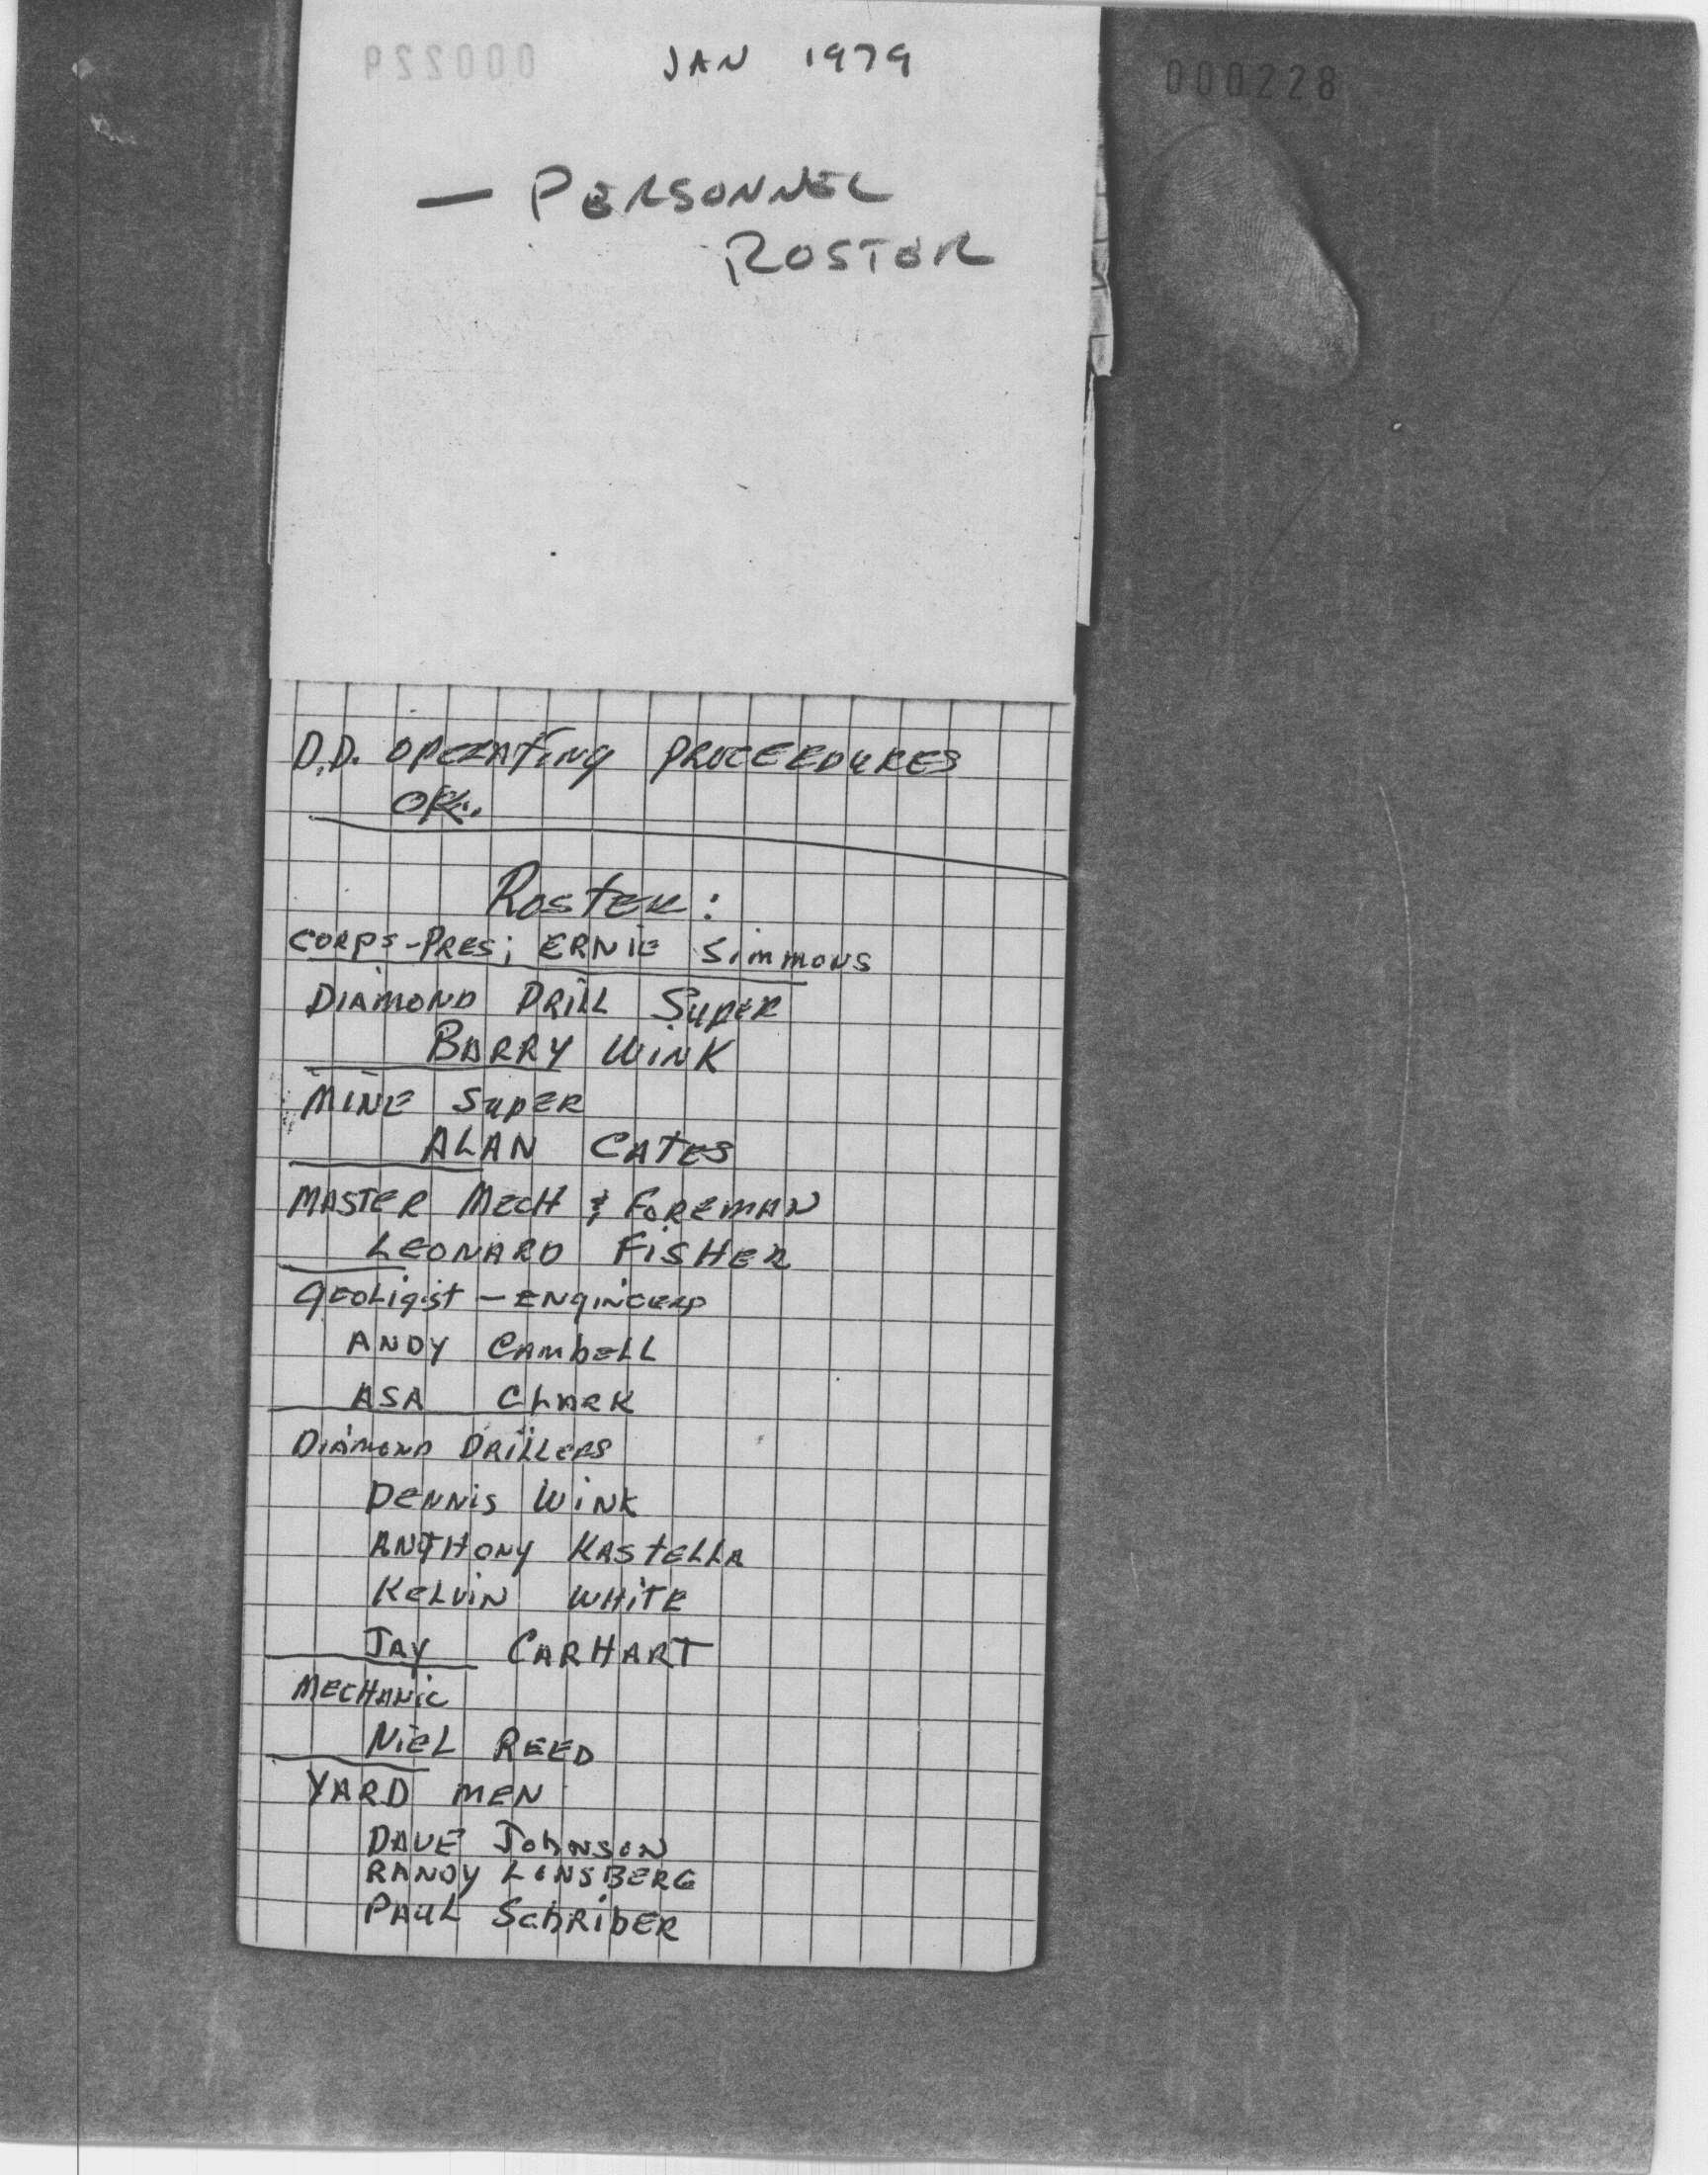 000229
JAN 1979
000228
— PERSONNEL
ROSTER
D.D. OPERATING PROCEEDURES
OK.
Roster:
CORPS-PRES; ERNIE Simmons
DIAMOND DRILL SupeR
BARRY WINK
MINE SupER
ALAN CATES
MASTER MECH & FOREMAN
LEONARD FISHER
GEOLigist - ENgiNeers
ANDY CAMbELL
ASA CLARK
DIAMOND DRILLERS
DENNis WiNK
ANTHONY KASTELLA
KELVIN WHITE
JAY CARHART
MECHANIC
NiEL REED
YARD MEN
DAVE JOhNSON
RANDY LONSBERG
PAUL SchRibER